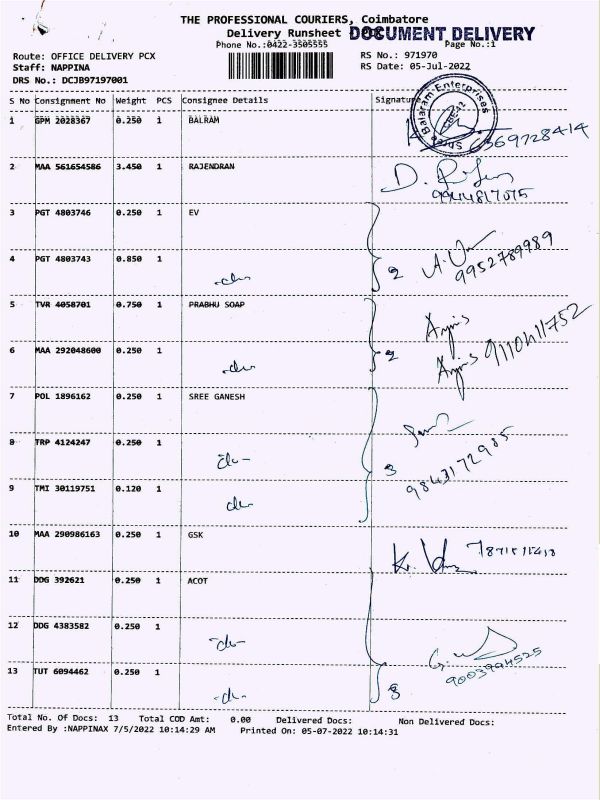 THE PROFESSIONAL COURIERS, Coimbatore
Delivery Runsheet
DOCUMENT DELIVERY
Phone No.:0422-3505555
Page No.:1
Route: OFFICE DELIVERY PCX
RS No.: 971970
Staff: NAPPINA
RS Date: 05-Jul-2022
DRS No.: DCJB97197001
S No Consignment No Weight PCS Consignee Details Signature
Shree Balaram Enterprises CBE-42
1 GPM 2028367 0.250 1 BALRAM 6369728414
2 MAA 561654586 3.450 1 RAJENDRAN
9944817075
3 PGT 4803746 0.250 1 EV
4 PGT 4803743 0.850 1 -do- 2 9952789989
5 TVR 4058701 0.750 1 PRABHU SOAP
6 MAA 292048600 0.250 1 -do- 2 9110411752
7 POL 1896162 0.250 1 SREE GANESH
8 TRP 4124247 0.250 1 -do- 3 9843172985
9 TMI 30119751 0.120 1 -do-
10 MAA 290986163 0.250 1 GSK
11 DDG 392621 0.250 1 ACOT
12 DDG 4383582 0.250 1 -do-
9003994525
13 TUT 6094462 0.250 1 -do-
Total No. Of Docs: 13 Total COD Amt: 0.00 Delivered Docs: Non Delivered Docs:
Entered By :NAPPINAX 7/5/2022 10:14:29 AM Printed On: 05-07-2022 10:14:31